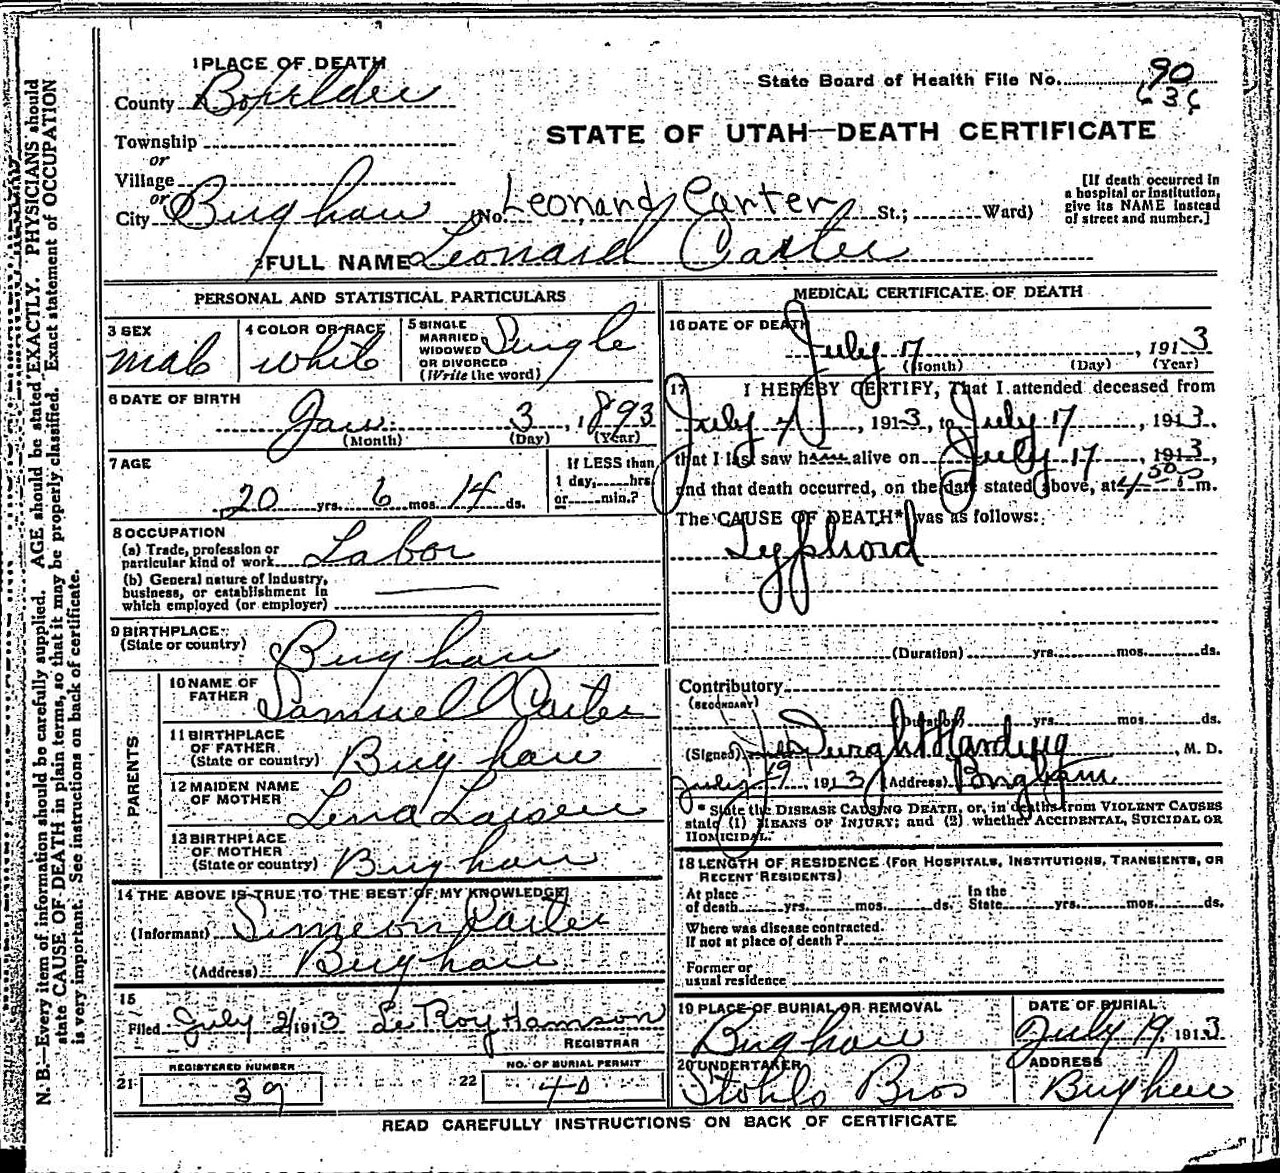 1 PLACE OF DEATH
County Boxelder
Township
or
Village
or
City Brigham (No. Leonard Carter St.; Ward)
State Board of Health File No. 90
636
STATE OF UTAH—DEATH CERTIFICATE
[If death occurred in
a hospital or institution,
give its NAME instead
of street and number.]
2 FULL NAME Leonard Carter
PERSONAL AND STATISTICAL PARTICULARS
3 SEX
male
4 COLOR OR RACE
white
5 SINGLE
MARRIED
WIDOWED
OR DIVORCED
(Write the word)
Single
6 DATE OF BIRTH
Jan. 3, 1893
(Month) (Day) (Year)
7 AGE
20 yrs. 6 mos. 14 ds.
If LESS than
1 day, hrs.
or min.?
8 OCCUPATION
(a) Trade, profession or
particular kind of work Labor
(b) General nature of industry,
business, or establishment in
which employed (or employer)
9 BIRTHPLACE
(State or country)
Brigham
PARENTS
10 NAME OF
FATHER
Samuel Carter
11 BIRTHPLACE
OF FATHER
(State or country)
Brigham
12 MAIDEN NAME
OF MOTHER
Lena Larsen
13 BIRTHPLACE
OF MOTHER
(State or country)
Brigham
14 THE ABOVE IS TRUE TO THE BEST OF MY KNOWLEDGE
(Informant) Simeon Carter
(Address) Brigham
15
Filed July 21 1913 Le Roy Hamson
REGISTRAR
REGISTERED NUMBER
21 39
NO. OF BURIAL PERMIT
22 40
MEDICAL CERTIFICATE OF DEATH
16 DATE OF DEATH
July 17, 1913
(Month) (Day) (Year)
17 I HEREBY CERTIFY, That I attended deceased from
July 4, 1913, to July 17, 1913,
that I last saw him alive on July 17, 1913,
and that death occurred, on the date stated above, at 4 50 p m.
The CAUSE OF DEATH* was as follows:
Typhoid
(Duration) yrs. mos. ds.
Contributory
(SECONDARY)
(Duration) yrs. mos. ds.
(Signed) Dwight Harding, M. D.
July 19, 1913 (Address) Brigham
* State the DISEASE CAUSING DEATH, or, in deaths from VIOLENT CAUSES
state (1) MEANS OF INJURY; and (2) whether ACCIDENTAL, SUICIDAL OR
HOMICIDAL.
18 LENGTH OF RESIDENCE (FOR HOSPITALS, INSTITUTIONS, TRANSIENTS, OR
RECENT RESIDENTS)
At place
of death yrs. mos. ds.
In the
State yrs. mos. ds.
Where was disease contracted.
If not at place of death?
Former or
usual residence
19 PLACE OF BURIAL OR REMOVAL
Brigham
DATE OF BURIAL
July 19, 1913
20 UNDERTAKER
Stohls Bros
ADDRESS
Brigham
READ CAREFULLY INSTRUCTIONS ON BACK OF CERTIFICATE
N. B.—Every item of information should be carefully supplied. AGE should be stated EXACTLY. PHYSICIANS should
state CAUSE OF DEATH in plain terms, so that it may be properly classified. Exact statement of OCCUPATION
is very important. See instructions on back of certificate.